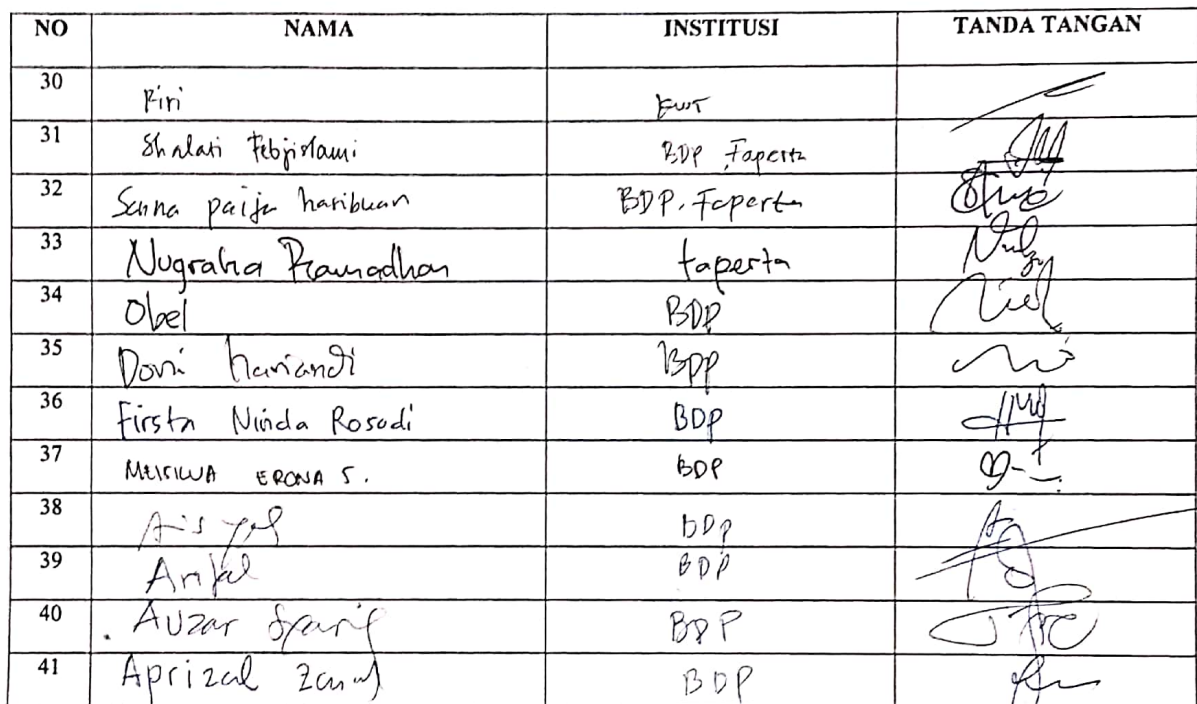 NO NAMA INSTITUSI TANDA TANGAN
30 Firi
31 Shalati Febjislami BDP, Faperta
32 Sanna paija hasibuan BDP, Faperta
33 Nugraha Ramadhan faperta
34 Obel BDP
35 Doni hariandi BDP
36 Firsta Ninda Rosadi BDP
37 MEISILVA ERONA S. BDP
38 BDP
39 BDP
40 Auzar Syarif BDP
41 Aprizal Zainal BDP